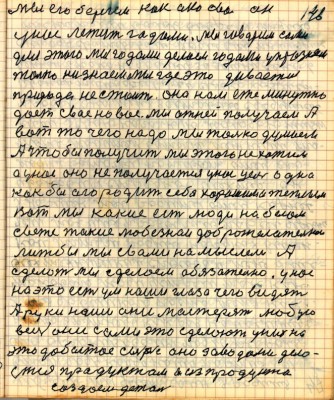 мы его бережем как око свое он 146
у нас летит годами. мы говорим сами
для этого мы годами делаем годами указываем
только не знаем мы где это девается
природа не стоит она нам ежеминутно
дает свое новое мы от ней получаем А
вот это чего надо мы только думаем
А чтобы получить мы этого не хотим
а у нас оно не получается у нас цель одна
как бы его родить себя хорошим и теплым
Вот мы какие есть люди на белом
свете такие любезные доброжелательные
лишь бы мы с вами намыслем А
сделать мы сделаем обязательно. у нас
на это есть ум наши глаза чего видят
А руки наши они мастерят любую
вещь они сами это сделают у них на
это добытое сырье оно заводами дае-
стся продуктам а из продукта
создаем детал